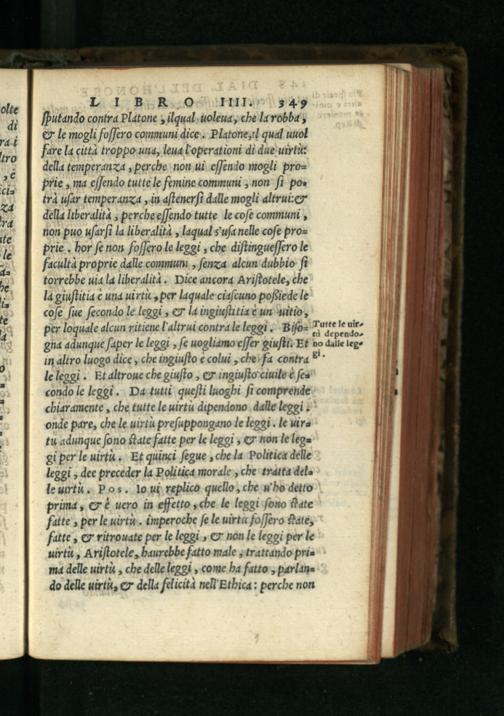 LIBRO IIII. 349
sputando contra Platone, ilqual uoleua, che la robba,
& le mogli fossero communi dice. Platone, il qual uuol
fare la città troppo una, leua l'operationi di due uirtù:
della temperanza, perche non ui essendo mogli pro=
prie, ma essendo tutte le femine communi, non si po=
trà usar temperanza, in astenersi dalle mogli altrui: &
della liberalità, perche essendo tutte le cose communi,
non puo usarsi la liberalità, laqual s'usa nelle cose pro=
prie. hor se non fossero le leggi, che distinguessero le
facultà proprie dalle communi, senza alcun dubbio si
torrebbe uia la liberalità. Dice ancora Aristotele, che
la giustitia è una uirtù, per laquale ciascuno poßiede le
cose sue secondo le leggi, & la ingiustitia è un uitio,
per loquale alcun ritiene l'altrui contra le leggi. Biso=
gna adunque saper le leggi, se uogliamo esser giusti. Et
in altro luogo dice, che ingiusto è colui, che fa contra
le leggi. Et altroue che giusto, & ingiusto ciuile è se=
condo le leggi. Da tutti questi luoghi si comprende
chiaramente, che tutte le uirtù dipendono dalle leggi.
onde pare, che le uirtù presuppongano le leggi. le uir=
tù adunque sono state fatte per le leggi, & non le leg=
gi per le uirtù. Et quinci segue, che la Politica delle
leggi, dee preceder la Politica morale, che tratta del=
le uirtù. Pos. Io ui replico quello, che u'ho detto
prima, & è uero in effetto, che le leggi sono state
fatte, per le uirtù. imperoche se le uirtù fossero state,
fatte, & ritrouate per le leggi, & non le leggi per le
uirtù, Aristotele, haurebbe fatto male, trattando pri=
ma delle uirtù, che delle leggi, come ha fatto, parlan=
do delle uirtù, & della felicità nell'Ethica: perche non
Tutte le uir-
tù dependo-
no dalle leg-
gi.